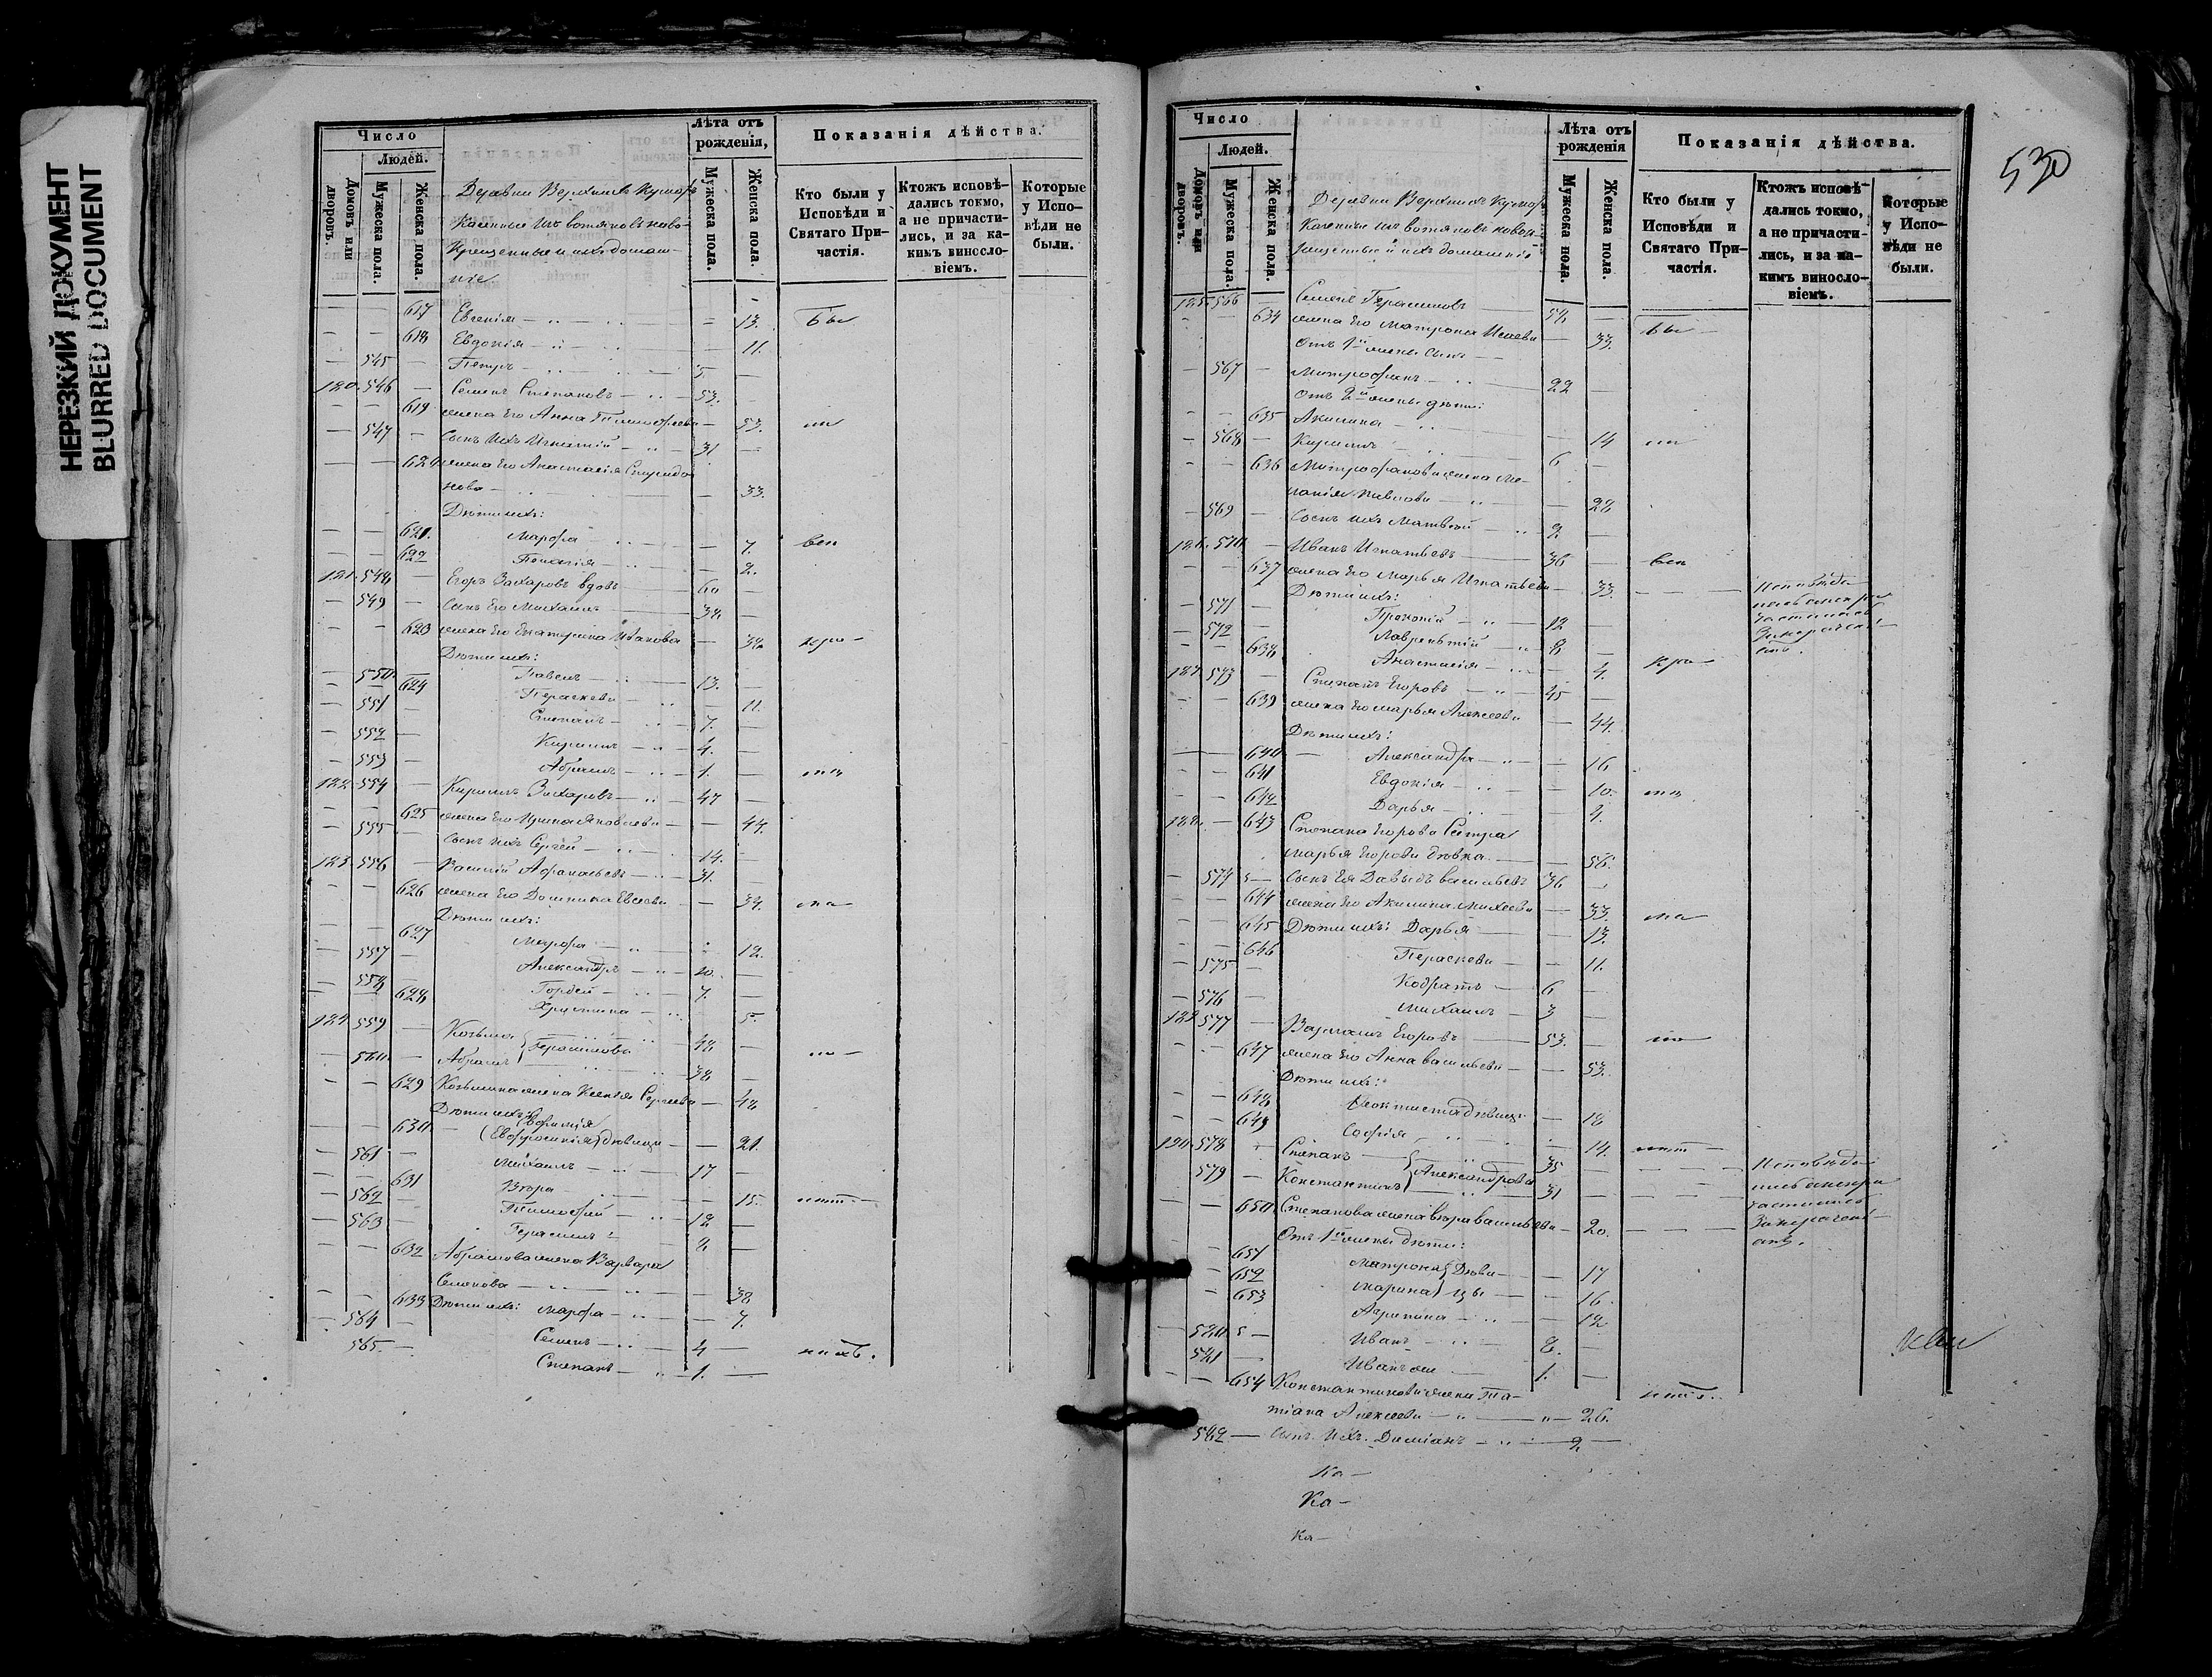 НЕРЕЗКИЙ ДОКУМЕНТ
BLURRED DOCUMENT
Число
Людей.
Домовъ или дворовъ.
Мужеска пола.
Женска пола.
Лѣта отъ рожденія,
Мужеска пола.
Женска пола.
Показанія дѣйства.
Кто были у Исповѣди и Святаго Причастія.
Ктожъ исповѣдались токмо, а не причастились, и за какимъ винословіемъ.
Которые у Исповѣди не были.
Деревни Верхнихъ
изъ вотяковъ ново-
крещенные и ихъ домаш-
ніе
617 Евгенія 13. бы
618 Евдокія 11.
545 Петръ 5.
120. 546 Семенъ Степановъ 53.
619 жена его Анна Тимофеева 53. ли
547 Сынъ ихъ Игнатій 31
620 жена его Анастасія Спиридо-
нова 33.
Дѣти ихъ:
621. Марфа 7. все
622 Пелагія 2.
121. 548 Егоръ Захаровъ вдовъ 60
549 Сынъ его Михаилъ 38.
623 жена его Екатерина Иванова 38.
Дѣти ихъ:
550. Павелъ 13.
624 Параскева 11.
551 Степанъ 7.
552 Кирилъ 4.
553 Абрамъ 1.
122. 554 Кирилъ Захаровъ 47
625 жена его Ирина Яковлева 44.
555 Сынъ ихъ Сергей 14.
123. 556 Василій Афанасьевъ 31.
626 жена его Домника Евсеева 34. ма
Дѣти ихъ:
627 Марфа 12.
557 Александръ 10.
558 Гордей 7.
628 Христина 5.
124 559 Козьма 48
560 Абрамъ } Герасимовы 38
629 Козьмина жена Ксенія Сергеева 48
Дѣти ихъ:
630. Евфросинія} дѣвицы 21.
561 Михаилъ 17
631 Вѣра 15.
562 Тимофей 12
563 Герасимъ 8.
632 Абрамова жена Варвара
Семенова 38
633 Дѣти ихъ: Марфа 7.
564 Семенъ 4
565 Степанъ 1.
530
Число
Людей.
Домовъ или дворовъ.
Мужеска пола.
Женска пола.
Лѣта отъ рожденія
Мужеска пола.
Женска пола.
Показанія дѣйства.
Кто были у Исповѣди и Святаго Причастія.
Ктожъ исповѣдались токмо, а не причастились, и за какимъ винословіемъ.
Которые у Исповѣди не были.
Деревни Верхнихъ
изъ вотяковъ новок-
рещенные и ихъ домашніе
125. 566 Семенъ Герасимовъ 54
634 жена его Матрона Исаева 33. бы
Отъ 1й жены сынъ
567 Митрофанъ 22
Отъ 2й жены дѣти:
635 Акилина 14 ли
568 Кирилъ 6
636 Митрофанова жена Ме-
ланія Павлова 28
569 Сынъ ихъ Матвей 2.
126. 570 Иванъ Игнатьевъ 36 все
637 жена его Марья Игнатьева 33.
Дѣти ихъ:
571 Прокопій 12
572 Лаврентій 8
638 Анастасія 4.
127 573 Степанъ Егоровъ 45
639 жена его Марья Алексеева 44.
Дѣти ихъ:
640 Александра 16
641 Евдокія 10.
642 Дарья 4.
128. 643 Степана Егорова Сестра
Марья Егорова вдовка 56.
574 Сынъ Ея Давыдъ Васильевъ 36
644 жена его Акилина Михеева 33. ма
645 Дѣти ихъ: Дарья 13.
646 Параскева 11.
575 Кодратъ 6
576 Михаилъ 3
129 577 Варламъ Егоровъ 53.
647 жена его Анна Васильева 53.
Дѣти ихъ:
648 Феоктиста дѣвица 18
649 Софія 14.
130 578 Степанъ 35
579 Константинъ } Александровы 31
650 Степанова жена Вѣра Васильева 20.
Отъ 1й жены дѣти:
651 Матрона } Дѣви- 17
652 Марина } цы 16.
653 Агрипина 12
580 Иванъ 8.
581 Иванъ же 1.
654 Константинова жена Та-
тіана Алексеева 26.
582 Сынъ ихъ Даміанъ 2.
Ка
Ка
Ка